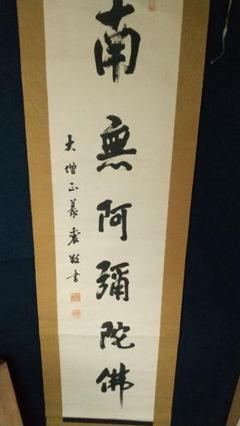 南無阿彌陀佛
大僧正義